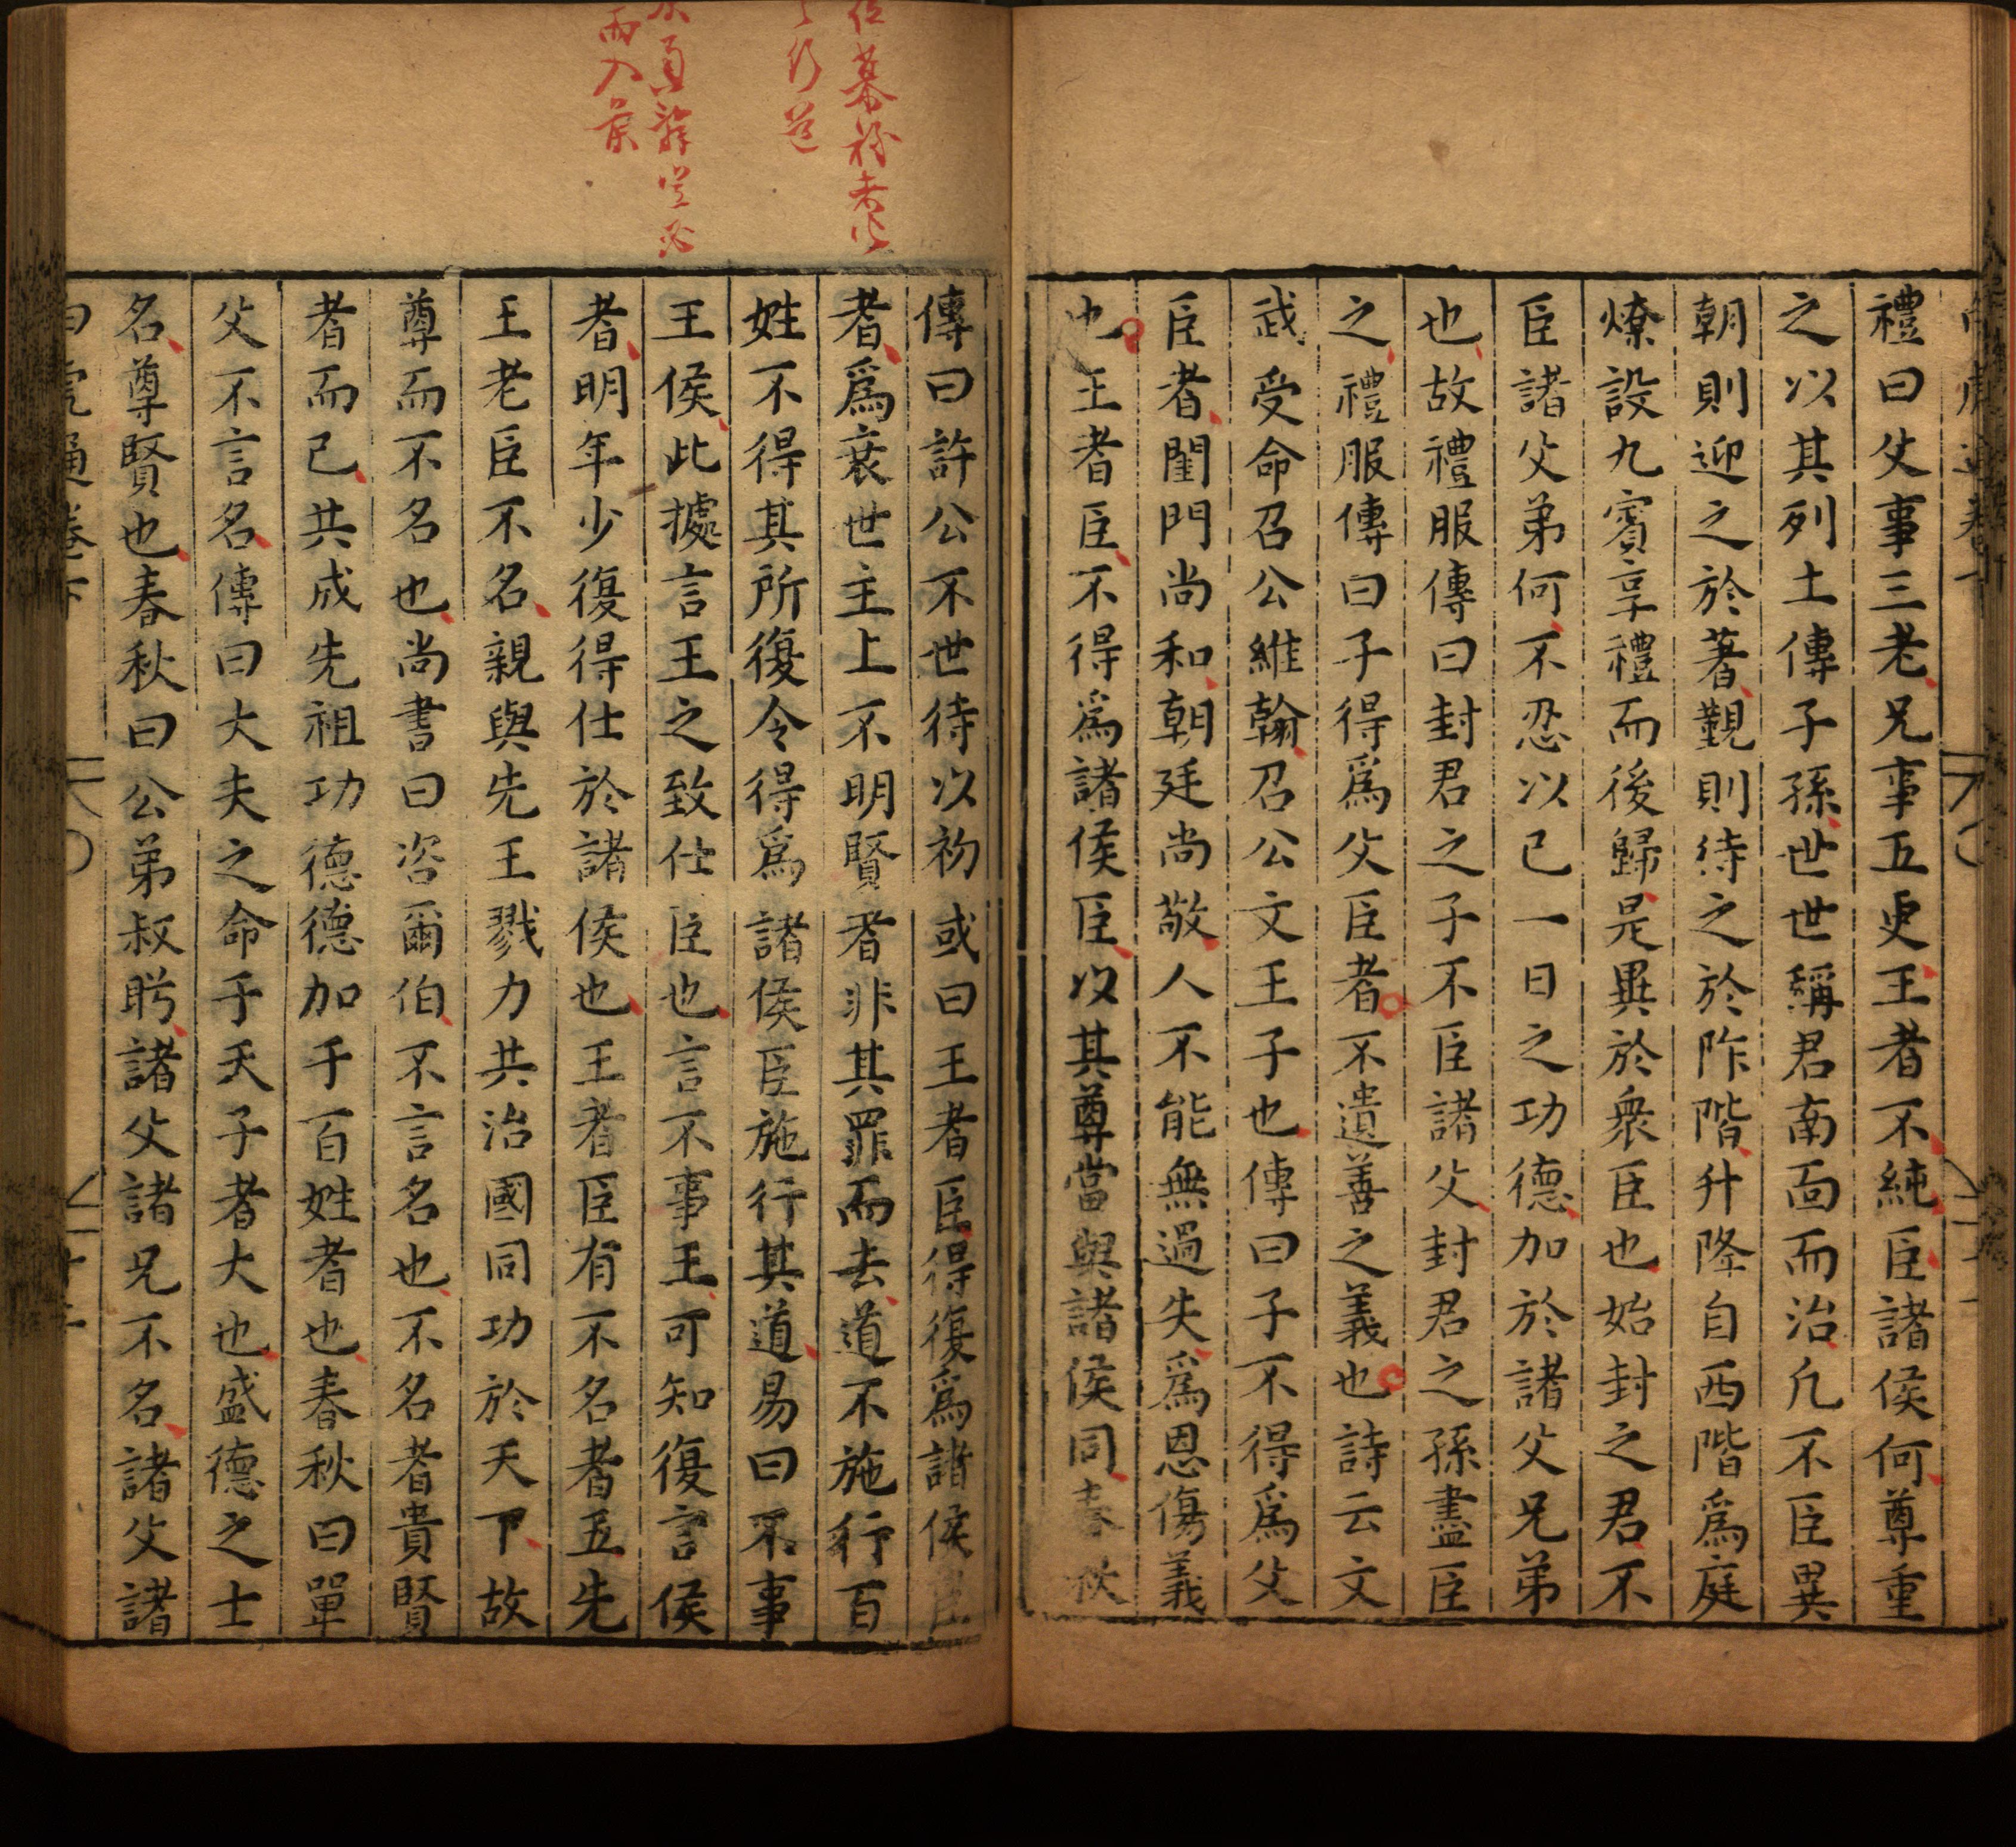 禮曰父事三老兄事五更王者不純臣諸侯何尊重
之以其列土傳子孫世世稱君南面而治凡不臣異
朝則迎之於著覲則待之於阼階升降自西階爲庭
燎設九賓享禮而後歸是異於衆臣也始封之君不
臣諸父弟何不忍以已一日之功德加於諸父兄弟
也故禮服傳曰封君之子不臣諸父封君之孫盡臣
之禮服傳曰子得爲父臣者不遺善之義也詩云文
武受命召公維翰召公文王子也傳曰子不得爲父
臣者閨門尚和朝廷尚敬人不能無過失爲恩傷義
也王者臣不得爲諸侯臣以其尊當與諸侯同春秋
傳曰許公不世待以初或曰王者臣得復爲諸侯臣
者爲衰世主上不明賢者非其罪而去道不施行百
姓不得其所復令得爲諸侯臣施行其道易曰不事
王侯此據言王之致仕臣也言不事王可知復言侯
者明年少復得仕於諸侯也王者臣有不名者五先
王老臣不名親與先王戮力共治國同功於天下故
尊而不名也尚書曰咨爾伯不言名也不名者貴賢
者而已共成先祖功德德加于百姓者也春秋曰單
父不言名傳曰大夫之命于天子者大也盛德之士
名尊賢也春秋曰公弟叔肹諸父諸兄不名諸父諸
白虎通卷下